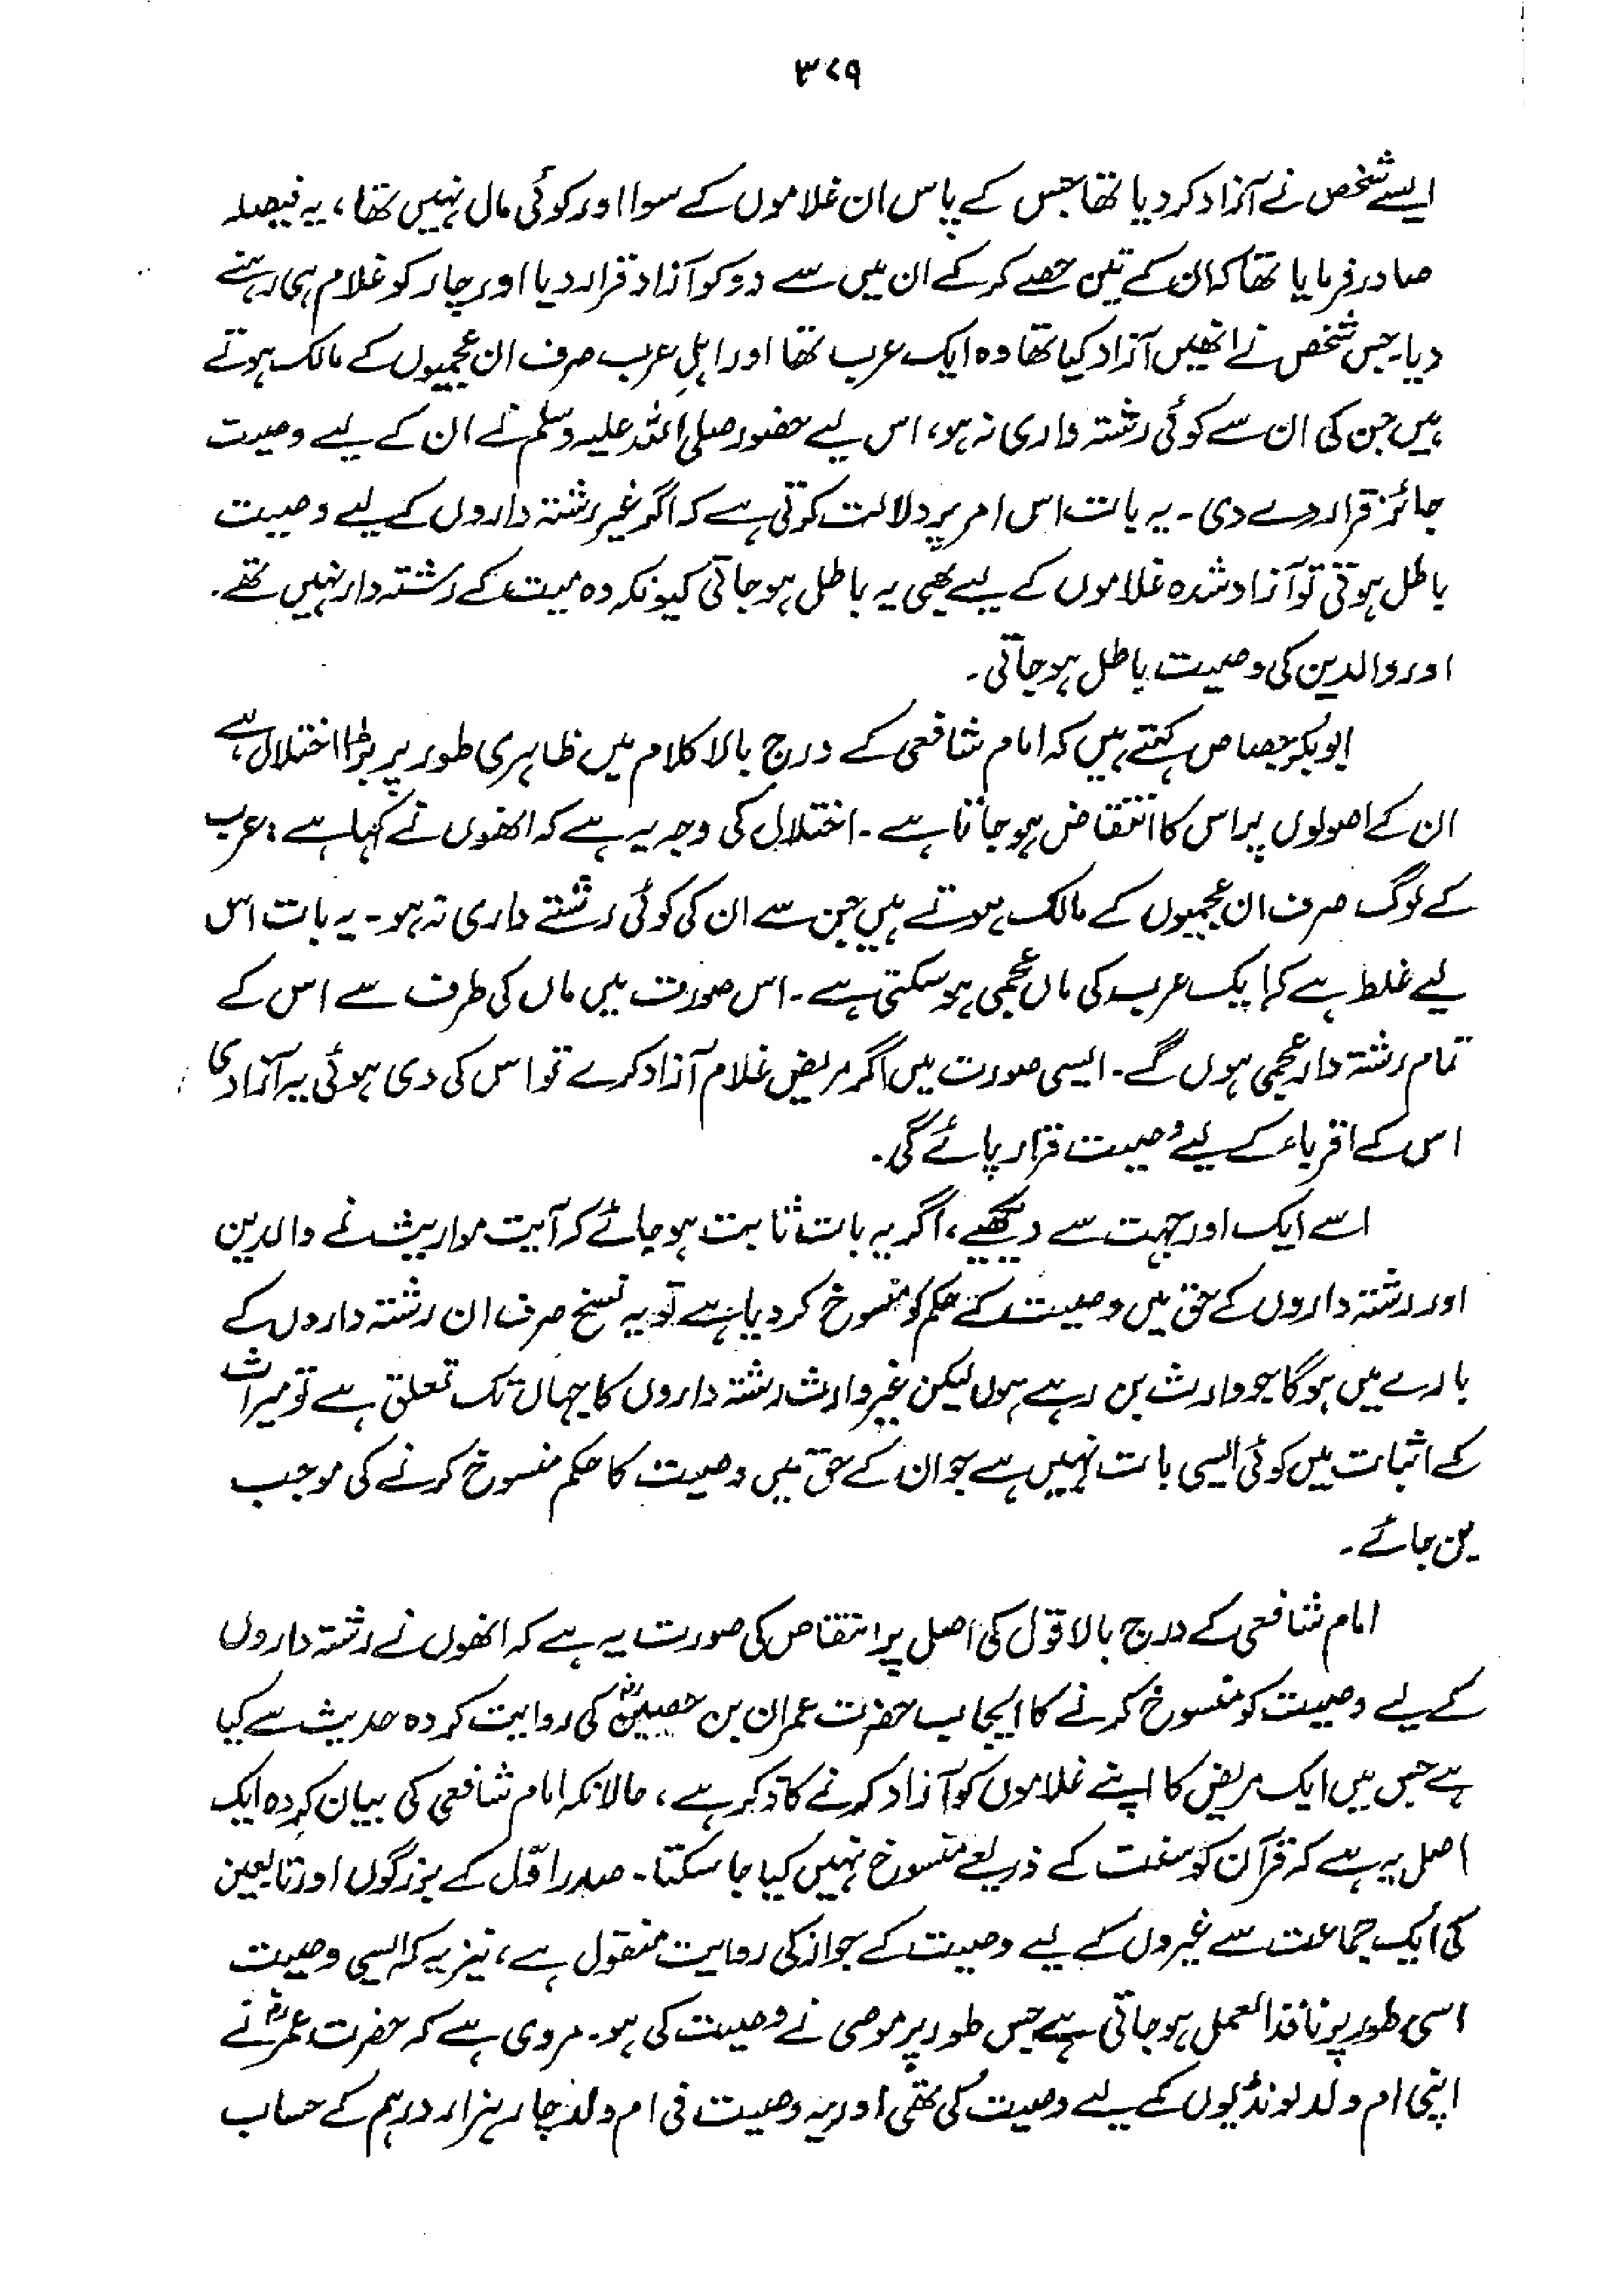 ۳۷۹
ایسے شخص نے آزاد کر دیا تھا جس کے پاس ان غلاموں کے سوا اور کوئی مال نہیں تھا، یہ فیصلہ
صادر فرمایا تھا کہ ان کے تین حصے کر کے ان میں سے دو کو آزاد قرار دیا اور چار کو غلام ہی رہنے
دیا۔ جس شخص نے انھیں آزاد کیا تھا وہ ایک عرب تھا اور اہلِ عرب صرف ان عجمیوں کے مالک ہوتے
ہیں جن کی ان سے کوئی رشتہ داری نہ ہو، اس لیے حضور صلی اللہ علیہ وسلم نے ان کے لیے وصیت
جائز قرار دے دی۔ یہ بات اس امر پر دلالت کرتی ہے کہ اگر غیر رشتہ داروں کے لیے وصیت
باطل ہوتی تو آزاد شدہ غلاموں کے لیے بھی یہ باطل ہو جاتی کیونکہ وہ میت کے رشتہ دار نہیں تھے۔
اور والدین کی وصیت باطل ہو جاتی۔
ابوبکر جصاص کہتے ہیں کہ امام شافعی کے درج بالا کلام میں ظاہری طور پر بڑا اختلال ہے
ان کے اصولوں پر اس کا انتقاض ہو جاتا ہے۔ اختلال کی وجہ یہ ہے کہ انھوں نے کہا ہے: عرب
کے لوگ صرف ان عجمیوں کے مالک ہوتے ہیں جن سے ان کی کوئی رشتے داری نہ ہو۔ یہ بات اس
لیے غلط ہے کہ ایک عرب کی ماں عجمی ہو سکتی ہے۔ اس صورت میں ماں کی طرف سے اس کے
تمام رشتہ دار عجمی ہوں گے۔ ایسی صورت میں اگر مریض غلام آزاد کرے تو اس کی دی ہوئی یہ آزادی
اس کے اقرباء کے لیے وصیت قرار پائے گی۔
اسے ایک اور جہت سے دیکھیے، اگر یہ بات ثابت ہو جائے کہ آیت مواریث نے والدین
اور رشتہ داروں کے حق میں وصیت کے حکم کو منسوخ کر دیا ہے تو یہ نسخ صرف ان رشتہ داروں کے
بارے میں ہو گا جو وارث بن رہے ہوں لیکن غیر وارث رشتہ داروں کا جہاں تک تعلق ہے تو میراث
کے اثبات میں کوئی ایسی بات نہیں ہے جو ان کے حق میں وصیت کا حکم منسوخ کرنے کی موجب
بن جائے۔
امام شافعی کے درج بالا قول کی اصل پر انتقاض کی صورت یہ ہے کہ انھوں نے رشتہ داروں
کے لیے وصیت کو منسوخ کرنے کا ایجاب حضرت عمران بن حصینؓ کی روایت کردہ حدیث سے کیا
ہے جس میں ایک مریض کا اپنے غلاموں کو آزاد کرنے کا ذکر ہے، حالانکہ امام شافعی کی بیان کردہ ایک
اصل یہ ہے کہ قرآن کو سنت کے ذریعے منسوخ نہیں کیا جا سکتا۔ صدر اوّل کے بزرگوں اور تابعین
کی ایک جماعت سے غیروں کے لیے وصیت کے جواز کی روایت منقول ہے، نیز یہ کہ ایسی وصیت
اسی طور پر نافذ العمل ہو جاتی ہے جس طور پر موصی نے وصیت کی ہو۔ مروی ہے کہ حضرت عمرؓ نے
اپنی ام ولد لونڈیوں کے لیے وصیت کی تھی اور یہ وصیت فی ام ولد چار ہزار درہم کے حساب